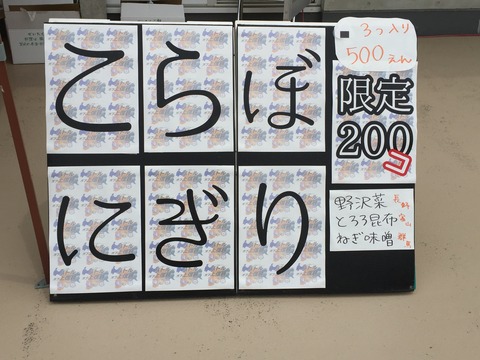 こらぼ
にぎり
3つ入り
500えん
限定
200コ
野沢菜 長野
とろろ昆布 富山
ねぎ味噌 群馬